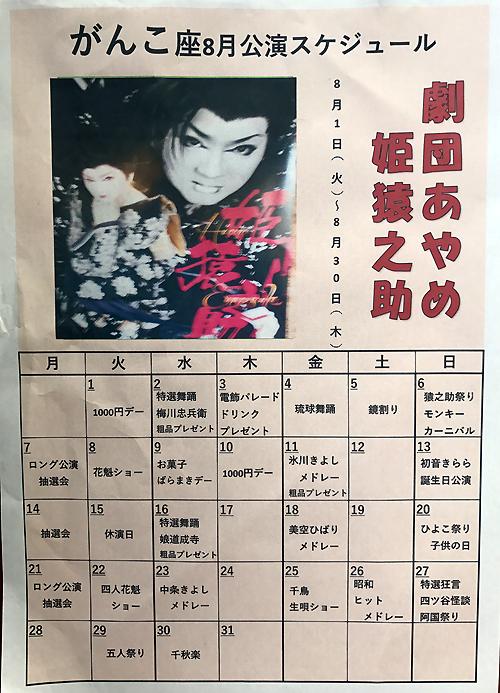 がんこ座8月公演スケジュール
劇団あやめ
姫猿之助
8月1日(火)～8月30日(木)
姫猿之助
月 火 水 木 金 土 日
1
1000円デー
2
特選舞踊
梅川忠兵衛
粗品プレゼント
3
電飾パレード
ドリンク
プレゼント
4
琉球舞踊
5
鏡割り
6
猿之助祭り
モンキー
カーニバル
7
ロング公演
抽選会
8
花魁ショー
9
お菓子
ばらまきデー
10
1000円デー
11
氷川きよし
メドレー
粗品プレゼント
12
13
初音きらら
誕生日公演
14
抽選会
15
休演日
16
特選舞踊
娘道成寺
粗品プレゼント
17
18
美空ひばり
メドレー
19
20
ひよこ祭り
子供の日
21
ロング公演
抽選会
22
四人花魁
ショー
23
中条きよし
メドレー
24
25
千鳥
生唄ショー
26
昭和
ヒット
メドレー
27
特選狂言
四ツ谷怪談
阿国祭り
28
29
五人祭り
30
千秋楽
31